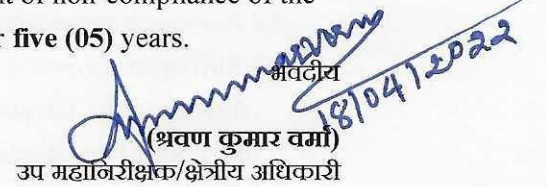 t of non-compliance of the
r five (05) years.
भवदीय
18/04/2022
(श्रवण कुमार वर्मा)
उप महानिरीक्षक/क्षेत्रीय अधिकारी